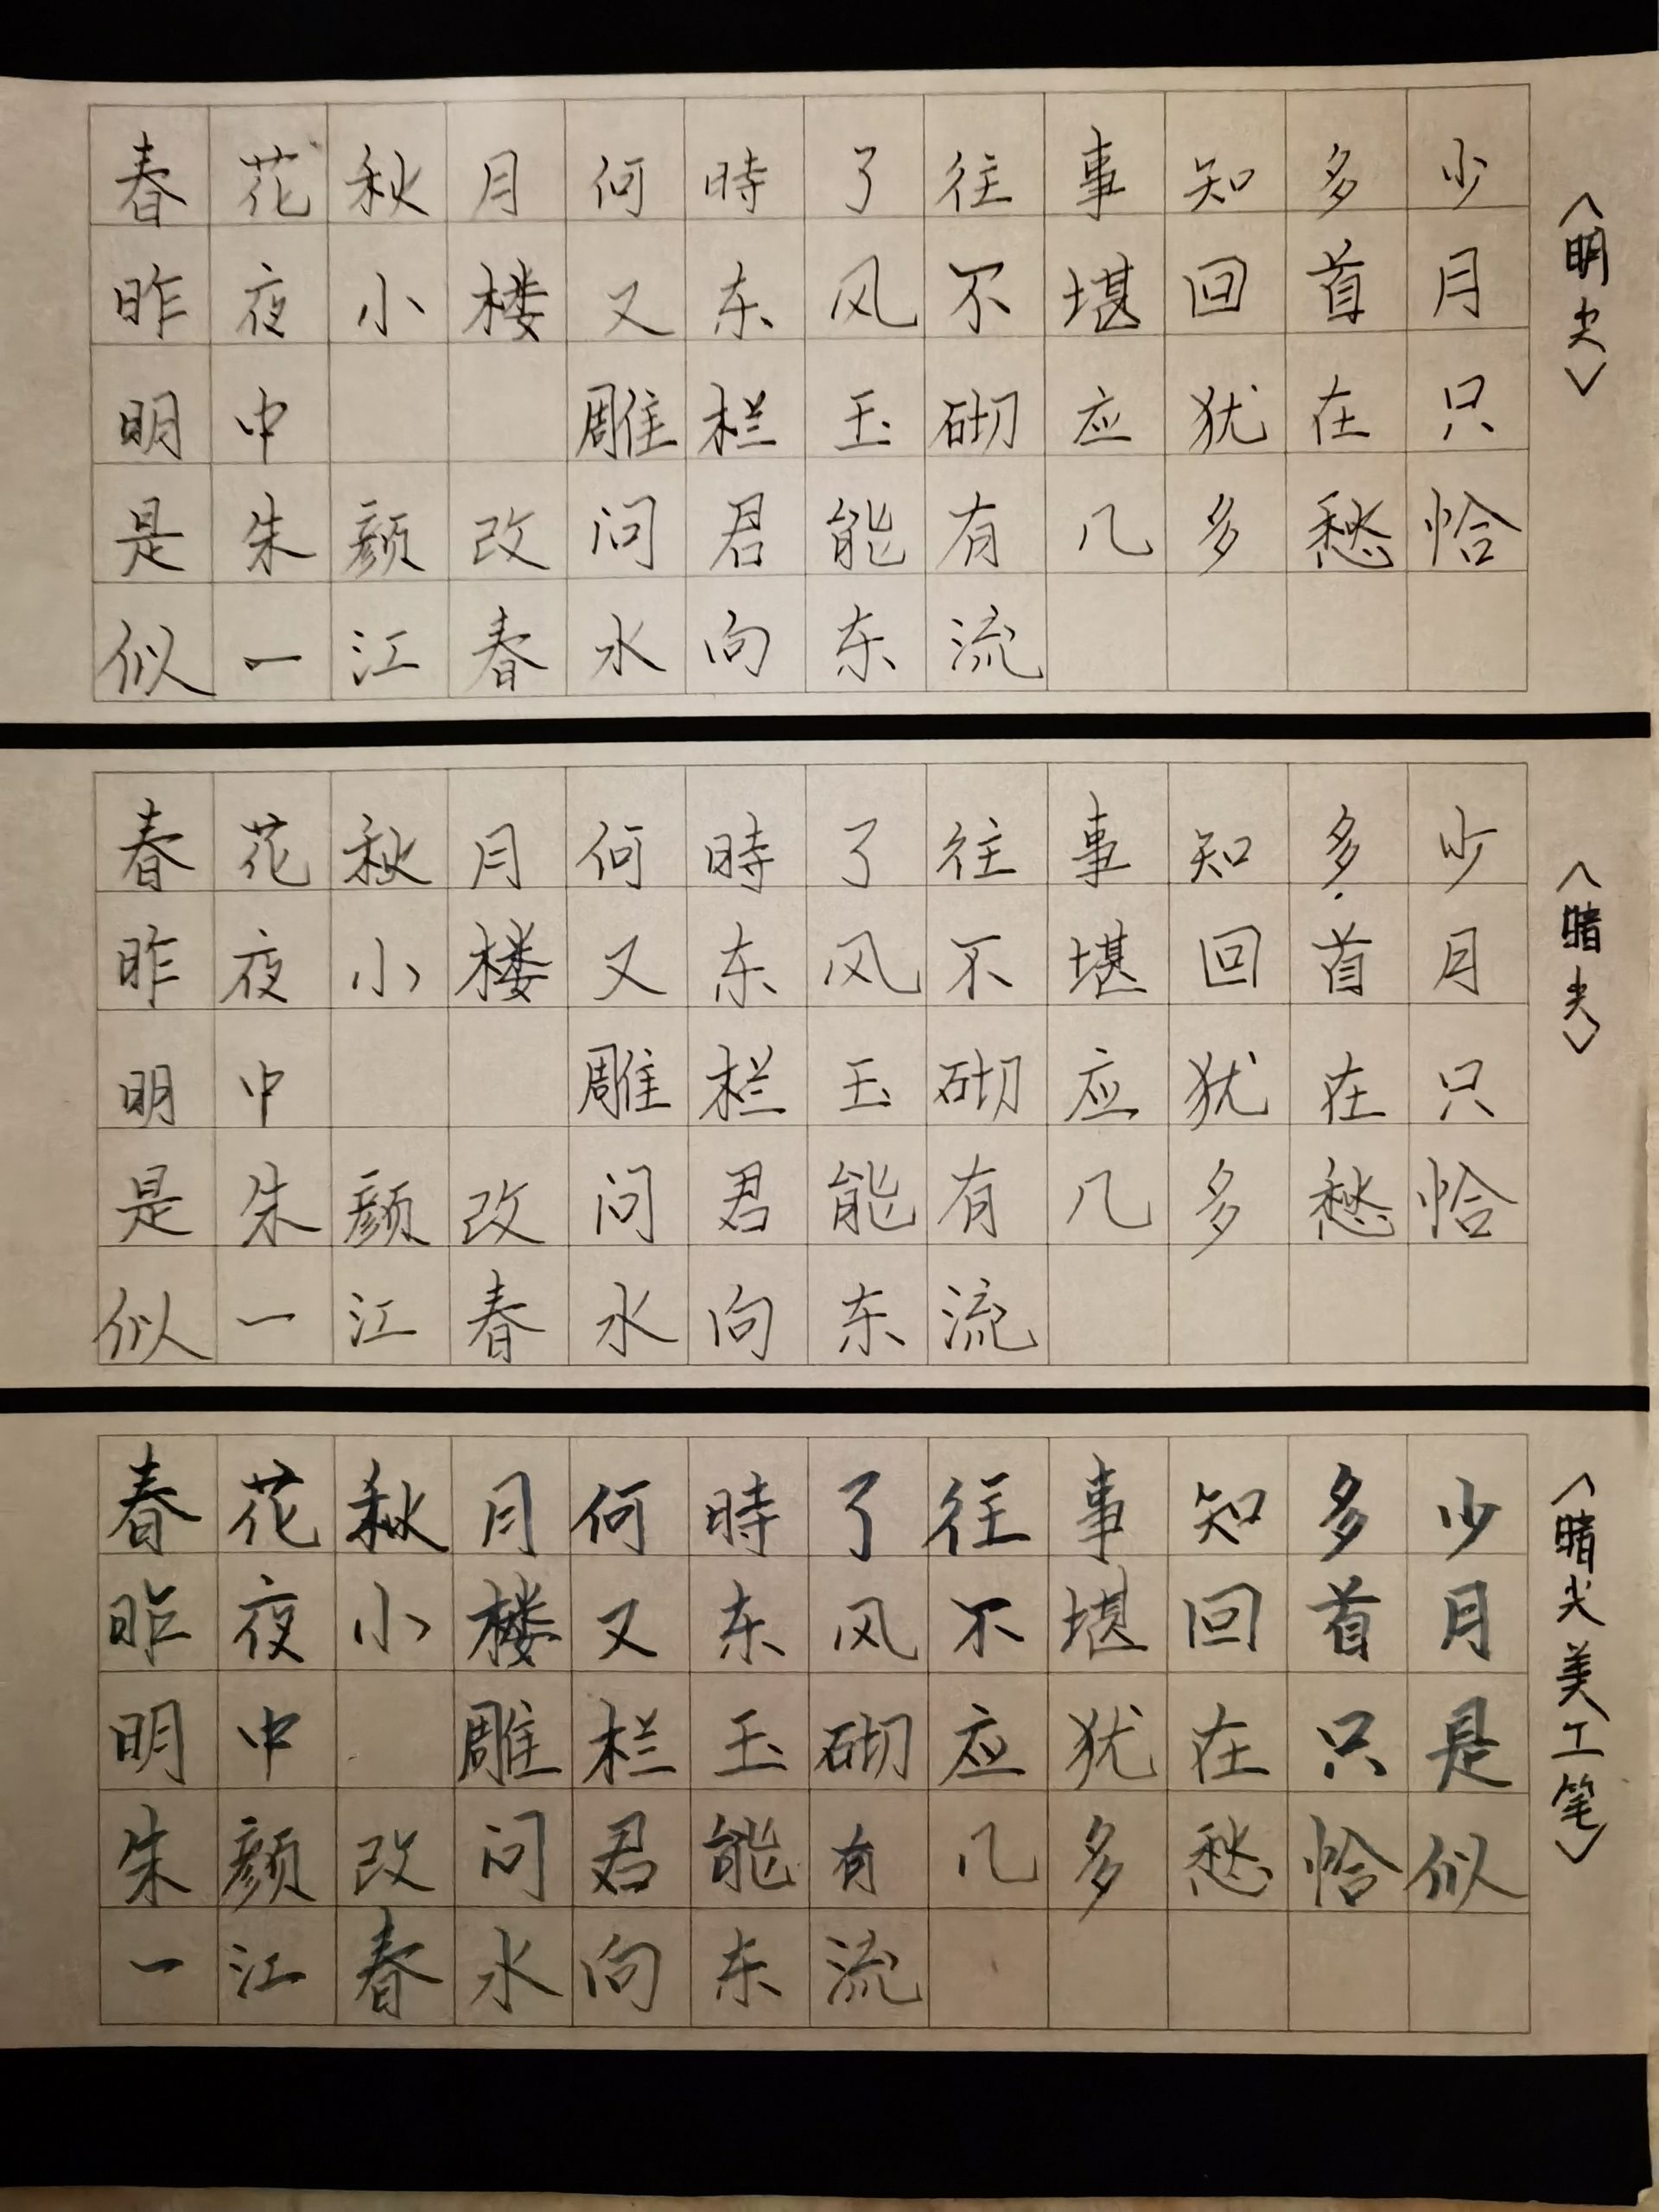 春花秋月何時了往事知多少
昨夜小楼又东风不堪回首月
明中 雕栏玉砌应犹在只
是朱颜改问君能有几多愁恰
似一江春水向东流
〈明尖〉
春花秋月何時了往事知多少
昨夜小楼又东风不堪回首月
明中 雕栏玉砌应犹在只
是朱颜改问君能有几多愁恰
似一江春水向东流
〈暗尖〉
春花秋月何時了往事知多少
昨夜小楼又东风不堪回首月
明中 雕栏玉砌应犹在只是
朱颜改问君能有几多愁恰似
一江春水向东流
〈暗尖美工笔〉